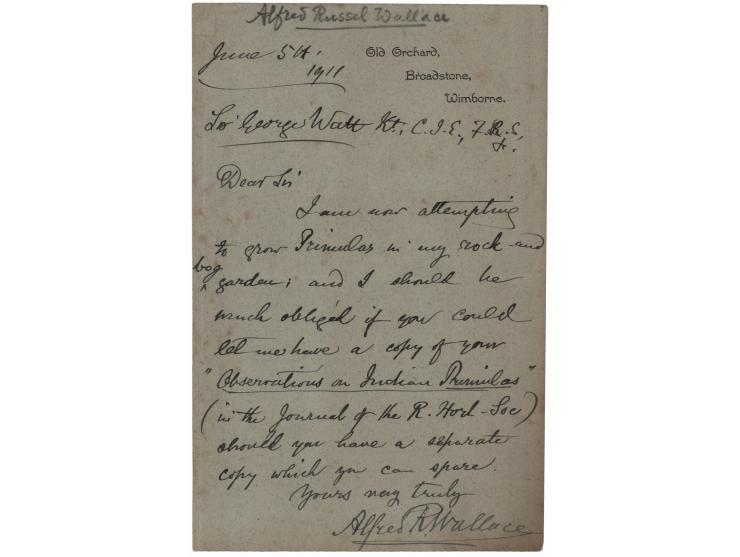 Alfred Russel Wallace
June 5th.
1911
Old Orchard,
Broadstone,
Wimborne.
Sir George Watt Kt., C.I.E.,
Dear Sir
I am now attempting
to grow Primulas in my rock-and
bog
garden; and I should be
much obliged if you could
let me have a copy of your
"Observations on Indian Primulas"
(in the Journal of the R. Hort-Soc)
should you have a separate
copy which you can spare.
Yours very truly
Alfred R. Wallace